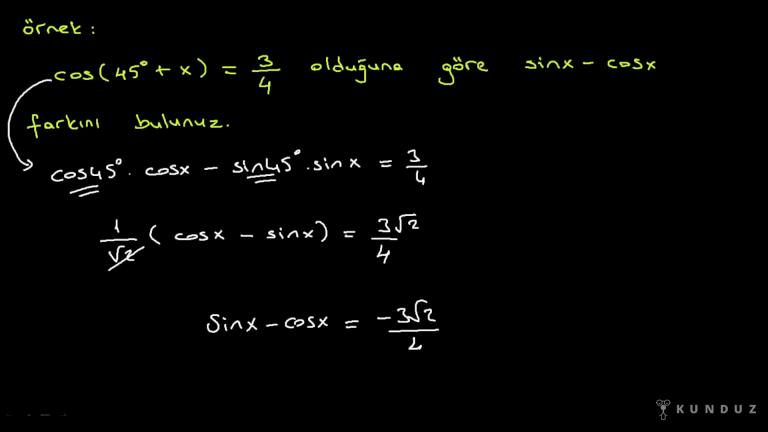 örnek:
cos(45° + x) = 3/4 olduğuna göre sinx - cosx
farkını bulunuz.
cos45° . cosx - sin45° . sinx = 3/4
1/√2 ( cosx - sinx ) = 3√2/4
Sinx - cosx = -3√2/4
KUNDUZ